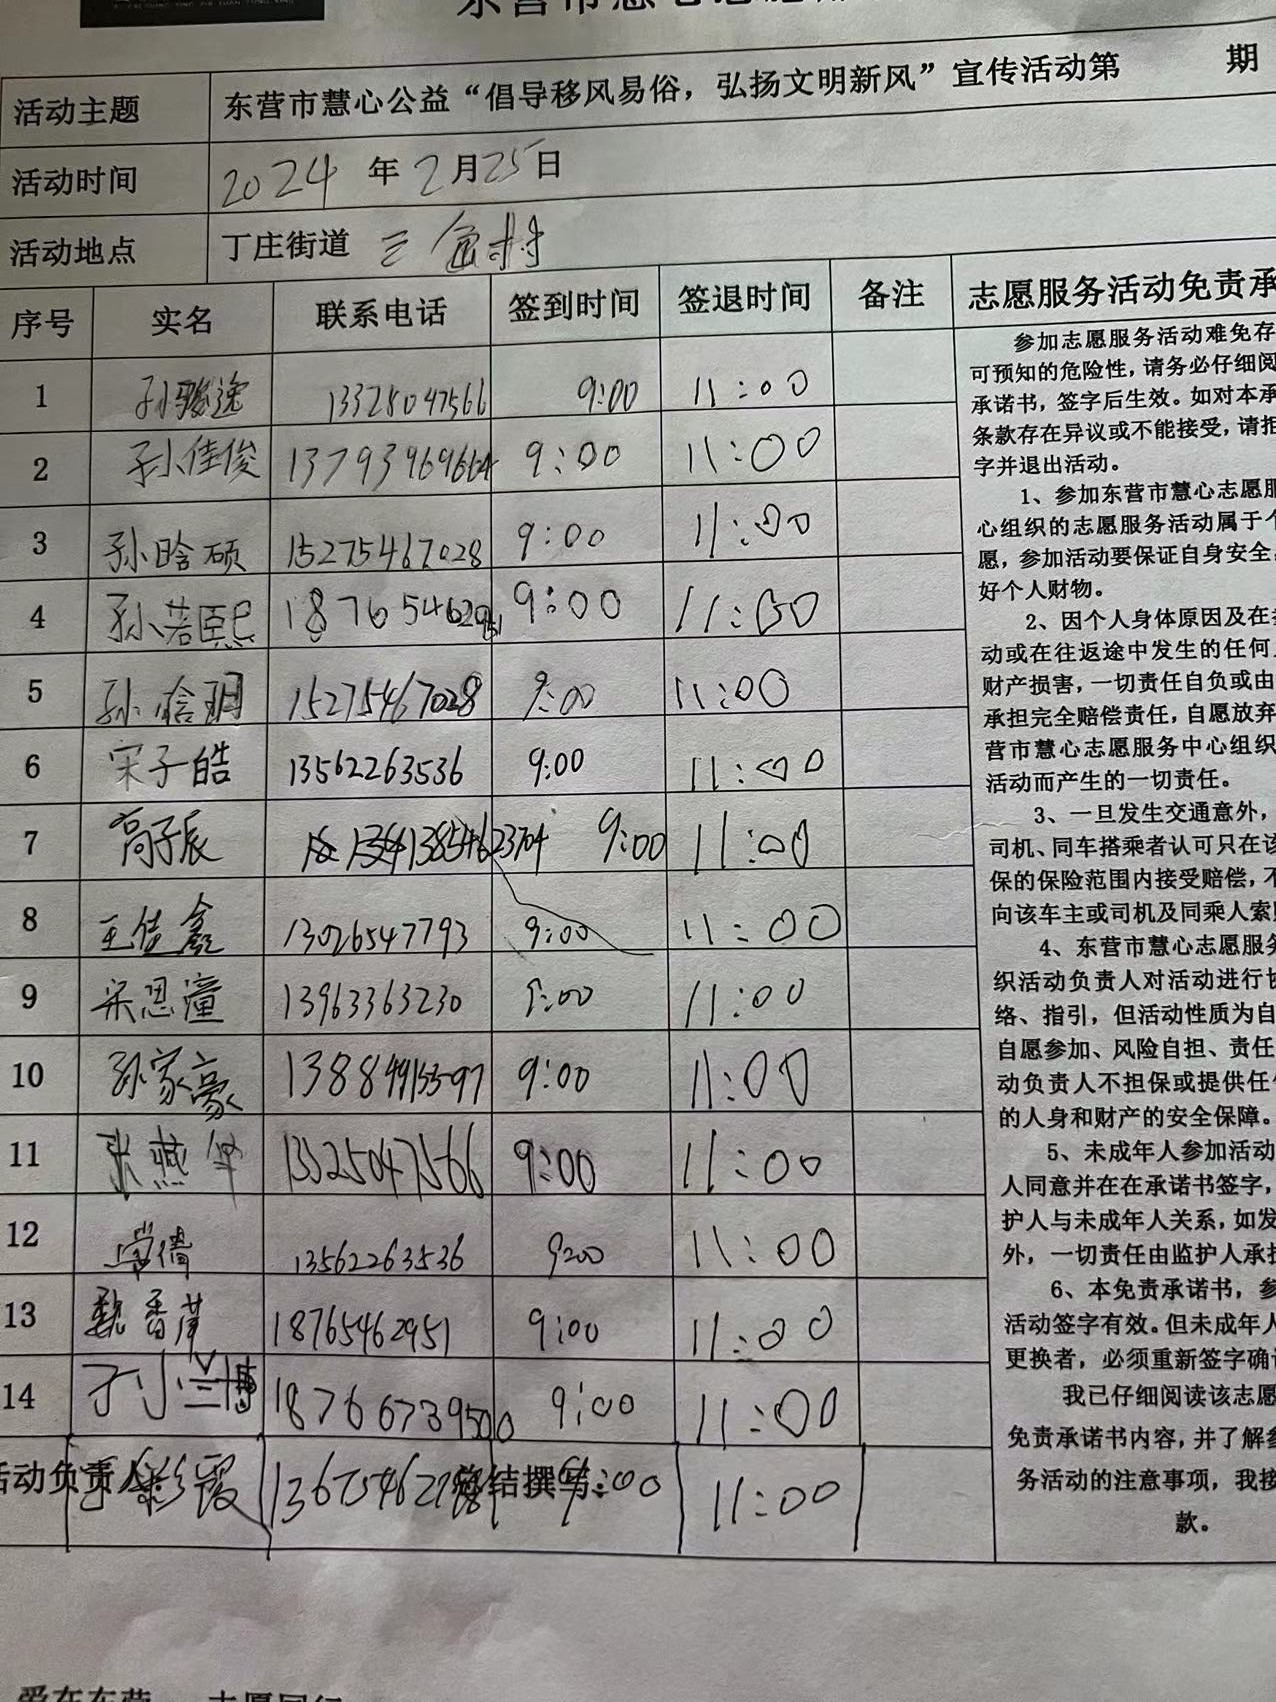 活动主题 东营市慧心公益“倡导移风易俗，弘扬文明新风”宣传活动第 期
活动时间 2024 年 2 月 25 日
活动地点 丁庄街道 三
序号 实名 联系电话 签到时间 签退时间 备注 志愿服务活动免责承
1 孙骏逸 13325047566 9:00 11:00
2 孙佳俊 13793969664 9:00 11:00
3 孙晗硕 15275467028 9:00 11:00
4 孙若熙 18765462951 9:00 11:00
5 孙晗玥 15275467028 9:00 11:00
6 宋子皓 13562263536 9:00 11:00
7 高子辰 13854623704 9:00 11:00
8 王佳鑫 13026547793 9:00 11:00
9 宋思潼 13963363230 9:00 11:00
10 孙家豪 9:00 11:00
11 张燕华 13325047566 9:00 11:00
12 常倩 13562263536 9:00 11:00
13 魏香芹 18765462951 9:00 11:00
14 孙兰博 18766739500 9:00 11:00
活动负责人 彩霞 总结撰写: 9:00 11:00
参加志愿服务活动难免存
可预知的危险性，请务必仔细阅
承诺书，签字后生效。如对本承
条款存在异议或不能接受，请拒
字并退出活动。
1、参加东营市慧心志愿服
心组织的志愿服务活动属于个
愿，参加活动要保证自身安全
好个人财物。
2、因个人身体原因及在参
动或在往返途中发生的任何
财产损害，一切责任自负或由
承担完全赔偿责任，自愿放弃
营市慧心志愿服务中心组织
活动而产生的一切责任。
3、一旦发生交通意外，
司机、同车搭乘者认可只在该
保的保险范围内接受赔偿，不
向该车主或司机及同乘人索赔
4、东营市慧心志愿服务
织活动负责人对活动进行协
络、指引，但活动性质为自
自愿参加、风险自担、责任
动负责人不担保或提供任何
的人身和财产的安全保障。
5、未成年人参加活动
人同意并在在承诺书签字，
护人与未成年人关系，如发
外，一切责任由监护人承担
6、本免责承诺书，参
活动签字有效。但未成年人
更换者，必须重新签字确认
我已仔细阅读该志愿
免责承诺书内容，并了解参
务活动的注意事项，我接
款。